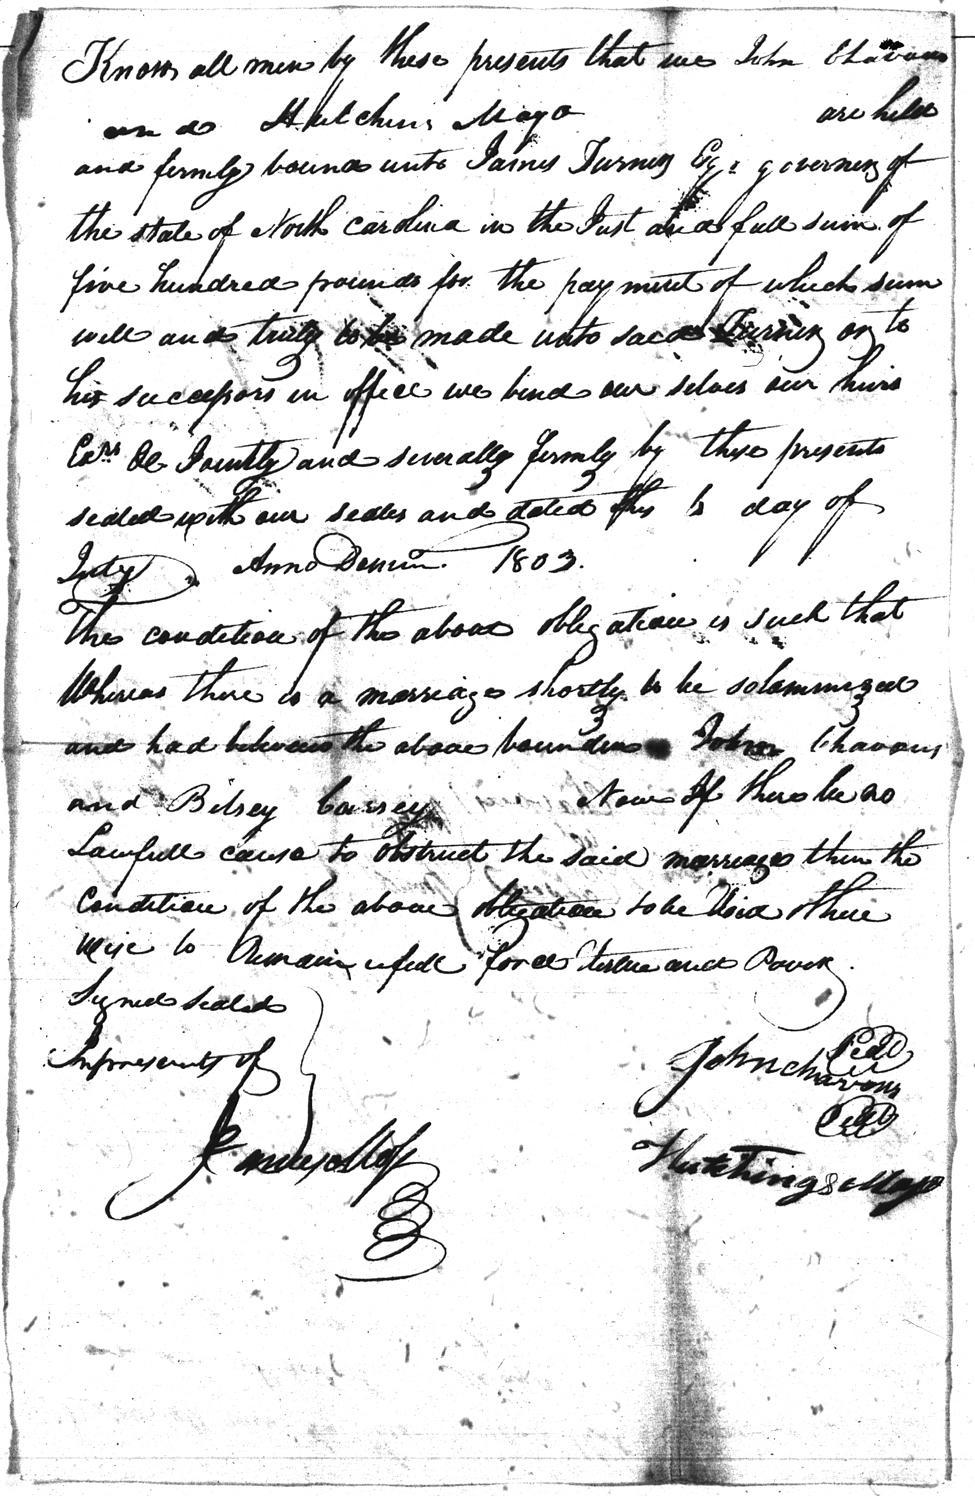 Know all men by these presents that we John Chavous
and Hutchins Mayo are held
and firmly bound unto James Turner Esqr governer of
the state of North Carolina in the Just and full sum of
five hundred pounds for the payment of which sum
well and truly to be made unto said Turner or to
his successors in office we bind our selves our heirs
Exrs &c Jointly and severally firmly by these presents
sealed with our seales and dated this day of
July Anno Domini 1803.
The condition of the above obligation is such that
Whereas there is a marriage shortly to be solammized
and had between the above bounden John Chavous
and Bitsey Carsey Now If there be no
Lawfull cause to obstruct the said marriage then the
Condition of the above obligation to be Void othere
wise to Remain in full force virtue and Power.
Signed sealed
In presents of
John Chavous Seal
Seal
Hutchings Mayo